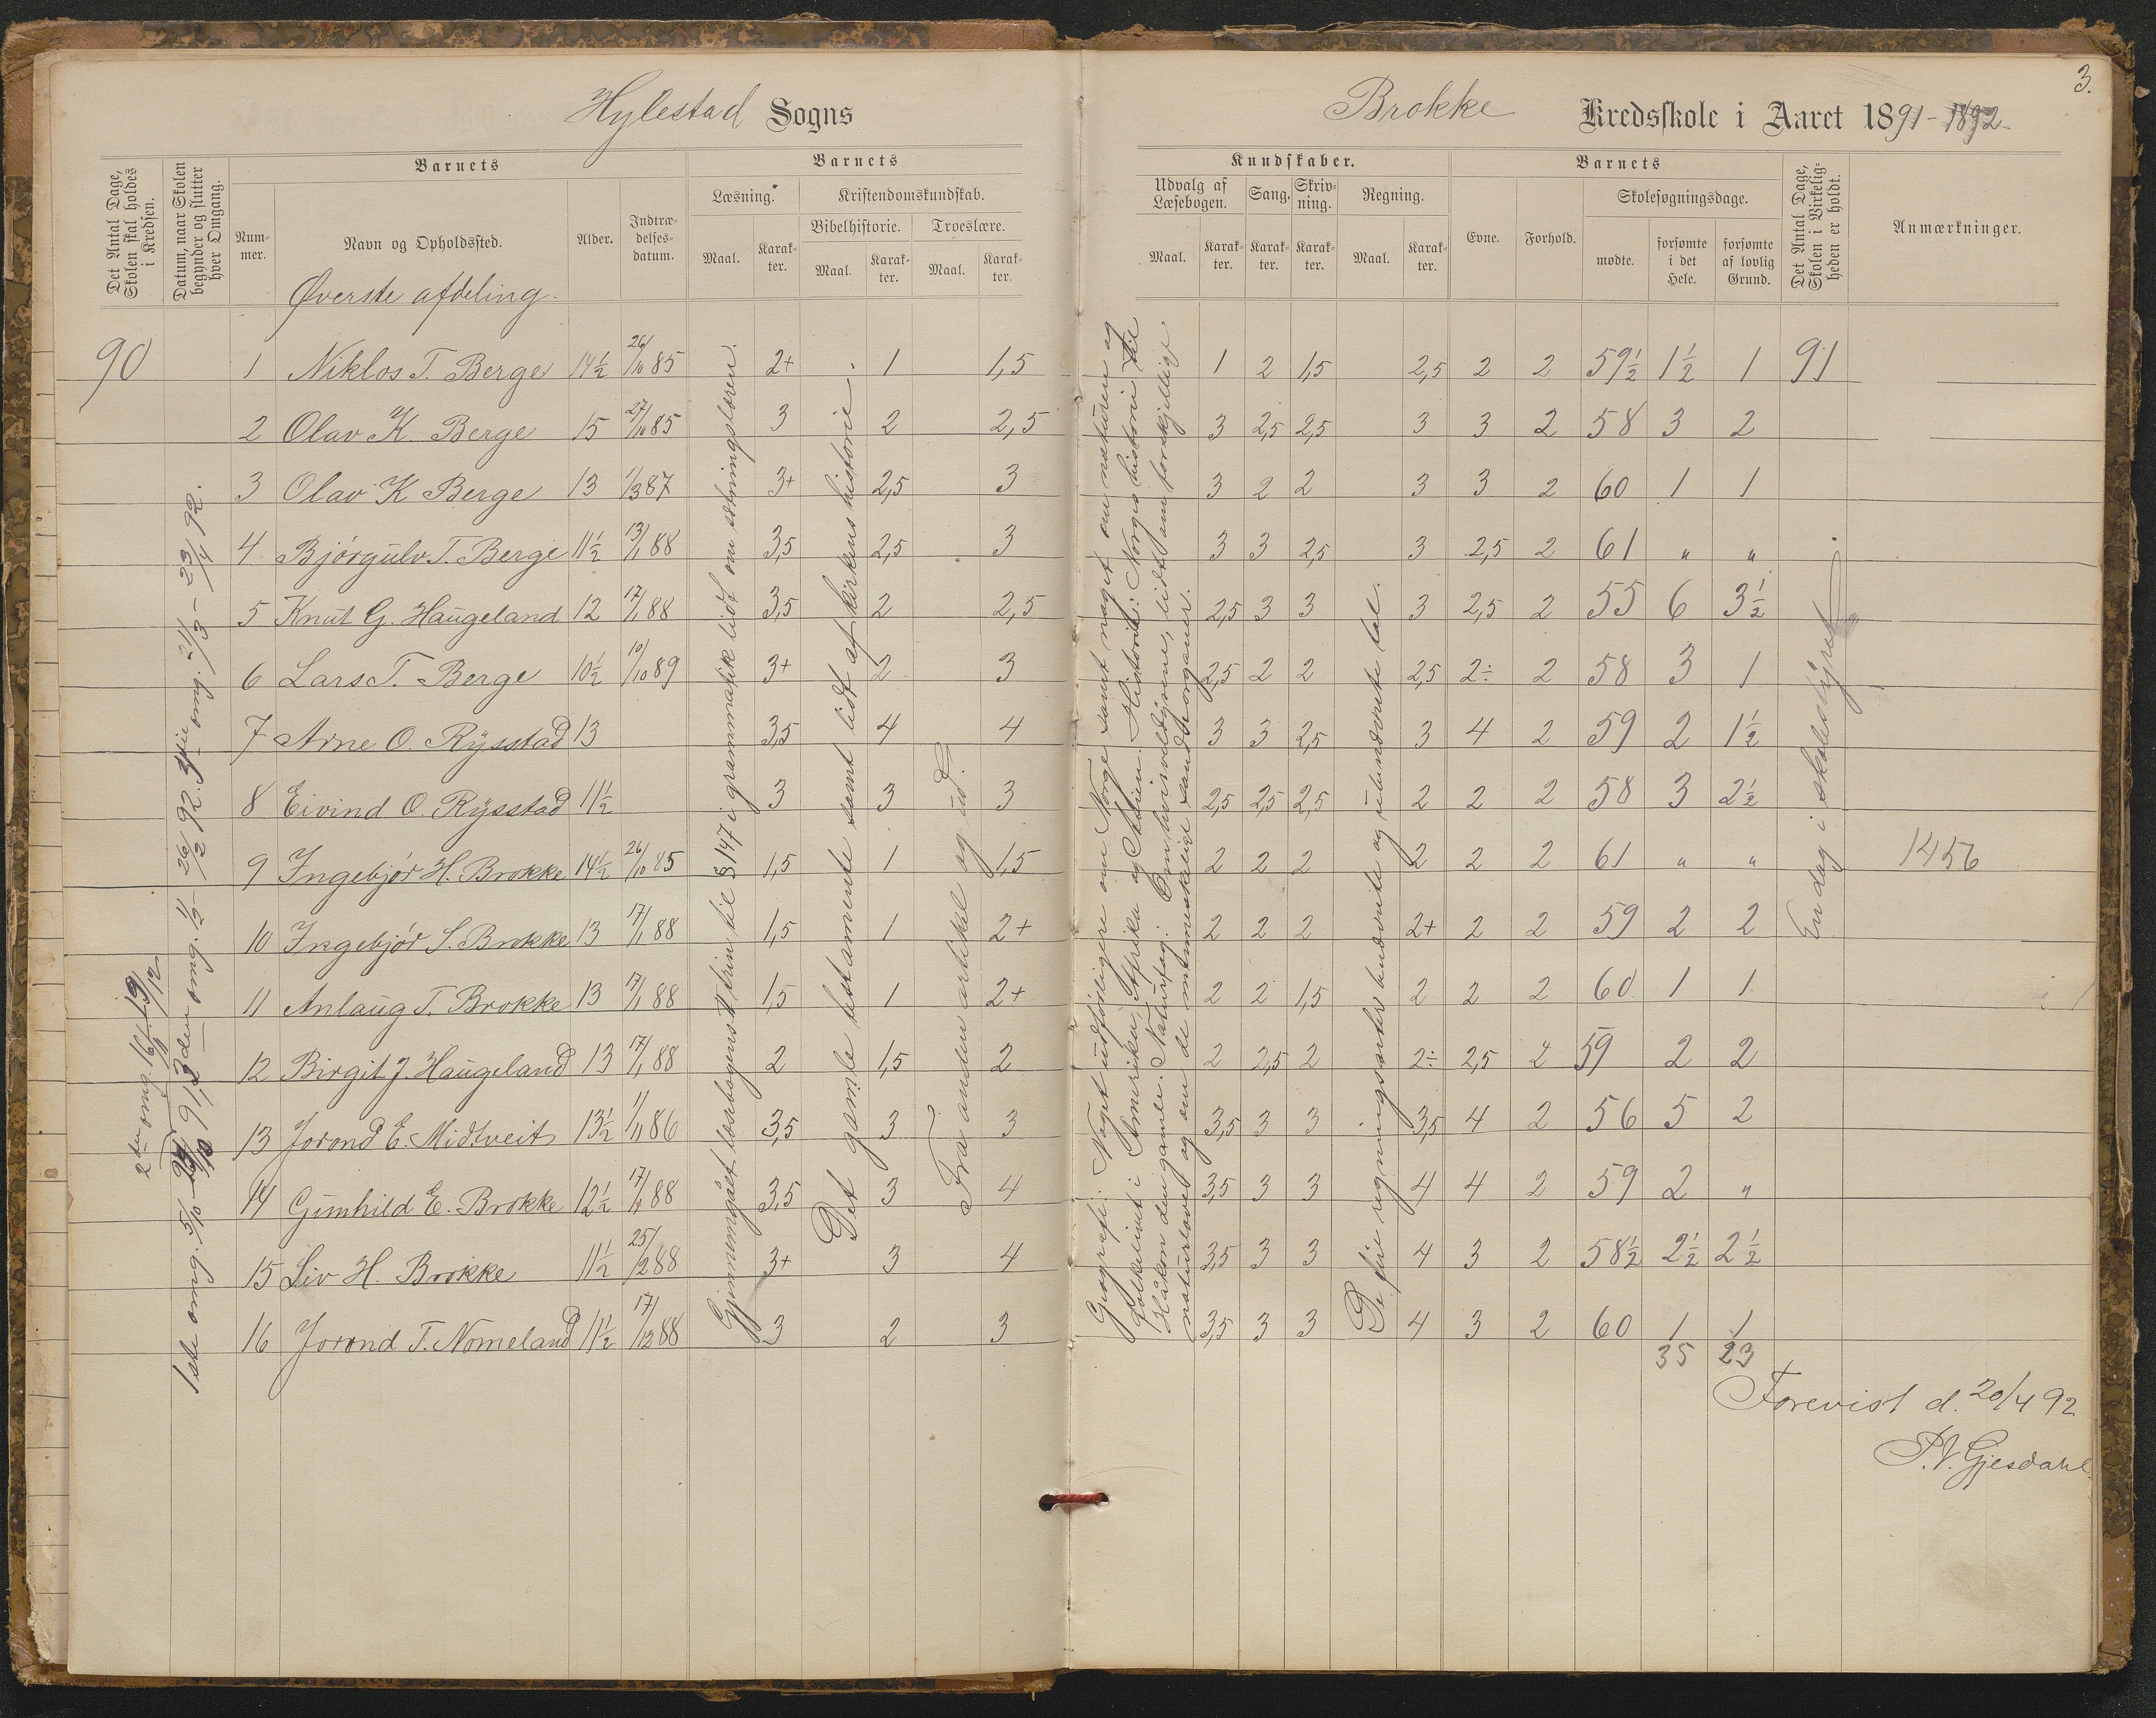 3.
Hylestad Sogns
Brokke Kredsskole i Aaret 1891-1892
Det Antal Dage, Skolen skal holdes i Kredsen.
Datum, naar Skolen begynder og slutter hver Omgang.
Barnets
Nummer.
Navn og Opholdssted.
Alder.
Indtrædelses-datum.
Barnets
Læsning.
Maal.
Karakter.
Kristendomskundskab.
Bibelhistorie.
Maal.
Karakter.
Troeslære.
Maal.
Karakter.
Kundskaber.
Udvalg af Læsebogen.
Maal.
Karakter.
Sang.
Karakter.
Skrivning.
Karakter.
Regning.
Maal.
Karakter.
Barnets
Evne.
Forhold.
Skolesøgningsdage.
mødte.
forsømte i det Hele.
forsømte af lovlig Grund.
Det Antal Dage, Skolen i Virkeligheden er holdt.
Anmærkninger.
Øverste afdeling.
90 1 Niklos T. Berge 14½ 26/10 85 2+ 1 1,5 1 2 1,5 2,5 2 2 59½ 1½ 1 91
2 Olav K. Berge 15 27/10 85 3 2 2,5 3 2,5 2,5 3 3 2 58 3 2
3 Olav K Berge 13 1/3 87 3+ 2,5 3 3 2 2 3 3 2 60 1 1
4 Bjørgulv T. Berge 11½ 13/1 88 3,5 2,5 3 3 3 2,5 3 2,5 2 61 " "
5 Knut G. Haugeland 12 17/1 88 3,5 2 2,5 2,5 3 3 3 2,5 2 55 6 3½
6 Lars T. Berge 10½ 10/10 89 3+ 2 3 2,5 2 2 2,5 2÷ 2 58 3 1
7 Arne O. Rysstad 13 3,5 4 4 3 3 2,5 3 4 2 59 2 1½
8 Eivind O. Rysstad 11½ 3 3 3 2,5 2,5 2,5 2 2 2 58 3 2½
9 Ingebjør H. Brokke 14½ 26/10 85 1,5 1 1,5 2 2 2 2 2 2 61 " " 1456
10 Ingebjør S. Brokke 13 17/1 88 1,5 1 2+ 2 2 2 2+ 2 2 59 2 2
11 Anlaug T. Brokke 13 17/1 88 1,5 1 2+ 2 2 1,5 2 2 2 60 1 1
12 Birgit J. Haugeland 13 17/1 88 2 1,5 2 2 2,5 2 2÷ 2,5 2 59 2 2
13 Jorond E. Midtveit 13½ 1/11 86 3,5 3 3 3,5 3 3 3,5 4 2 56 5 2
14 Gunhild E. Brokke 12½ 17/1 88 3,5 3 4 3,5 3 3 4 4 2 59 2 "
15 Liv H. Brokke 11½ 25/2 88 3+ 3 4 3,5 3 3 4 3 2 58½ 2½ 2½
16 Jorond T. Nomeland 11½ 17/12 88 3 2 3 3,5 3 3 4 3 2 60 1 1
35 23
1ste omg. 5/10 - 91, 3den omg. 1/2 - 26/2 92. 3die omg. 21/3 - 23/4 92.
2den omg. 16/11 - 19/12
Gjennemgået læsbogens trin til § 147 i grammatik lidt om sætningslæren.
Det gamle testamente samt lidt af kirkens historie.
Fra anden artikkel og ud.
Geografi: Noget udførligere om Norge samt noget om naturen og
Folkelivet i Amerika, Afrika og Asien. Historie: Norges historie til
Håkon den gamle. Naturfag: Om hvirveldyrene, lidt om forskjellige
naturlove og om de menneskelige sandseorganer.
De fire regningsarter benævnte og ubenævnte tal.
En dag i skolestyret
Forevist d. 20/4 92
P. V. Gjesdahl.